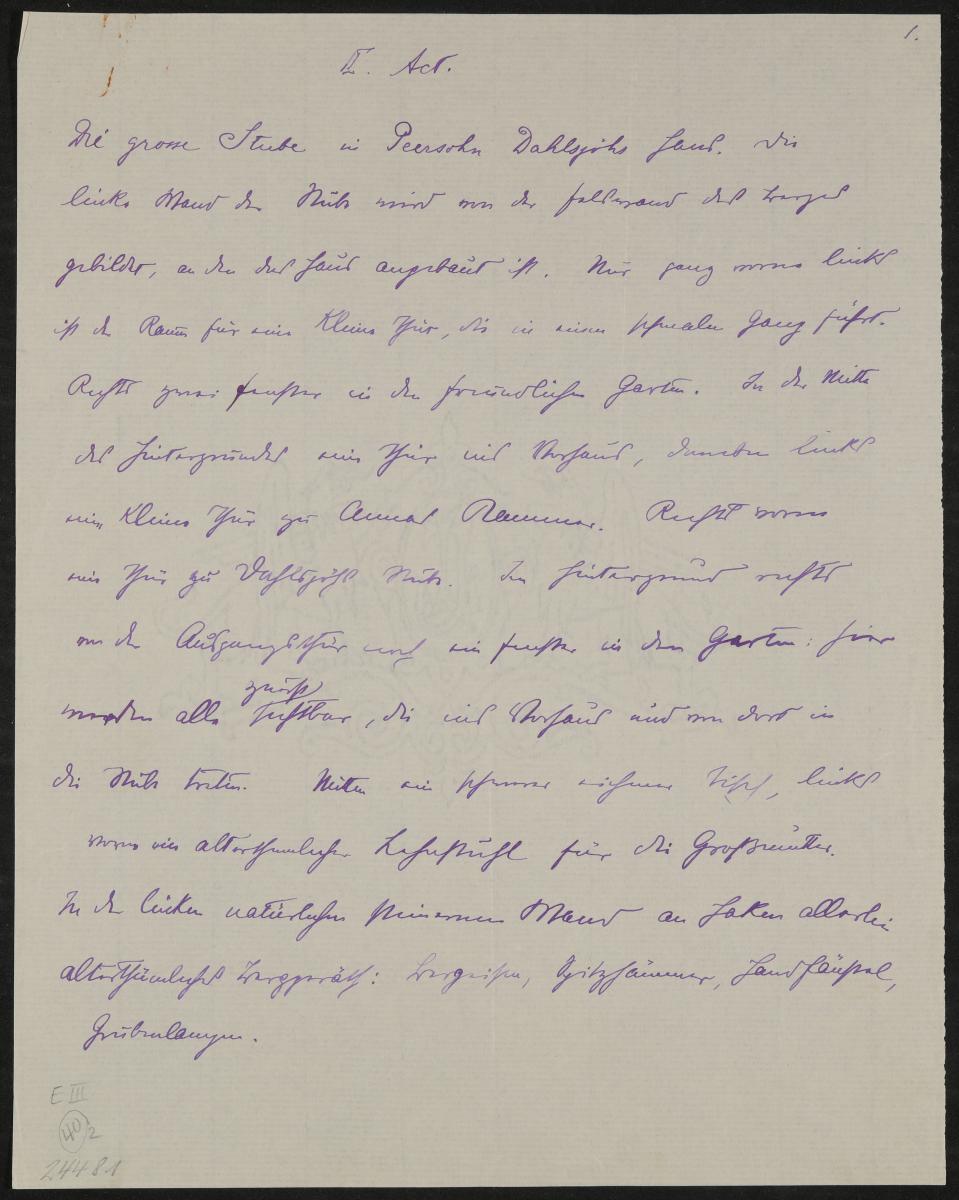 1.
II. Act.
Die grosse Stube in Peersohn Dahlsjöhs Haus. Die
linke Wand der Stube wird von der Felswand des Berges
gebildet, an den das Haus angebaut ist. Nur ganz vorne links
ist der Raum für eine kleine Thür, die in einen schmalen Gang führt.
Rechts zwei Fenster in den freundlichen Garten. In der Mitte
des Hintergrundes eine Thür ins Vorhaus, daneben links
eine kleine Thür zu Annas Kammer. Rechts vorne
eine Thür zu Dahlsjöhs Stube. Im Hintergrund rechts
von der Ausgangsthür noch ein Fenster in den Garten: hier
werden alle zuerst sichtbar, die ins Vorhaus und von dort in
die Stube treten. Mitten ein schwerer eichener Tisch, links
vorne ein alterthümlicher Lehnstuhl für die Großmutter.
In der linken natürlichen steinernen Wand an Haken allerlei
alterthümliches Berggeräth: Bergeisen, Spitzhämmer, Handfäustel,
Grubenlampen.
E III
40/2
24481